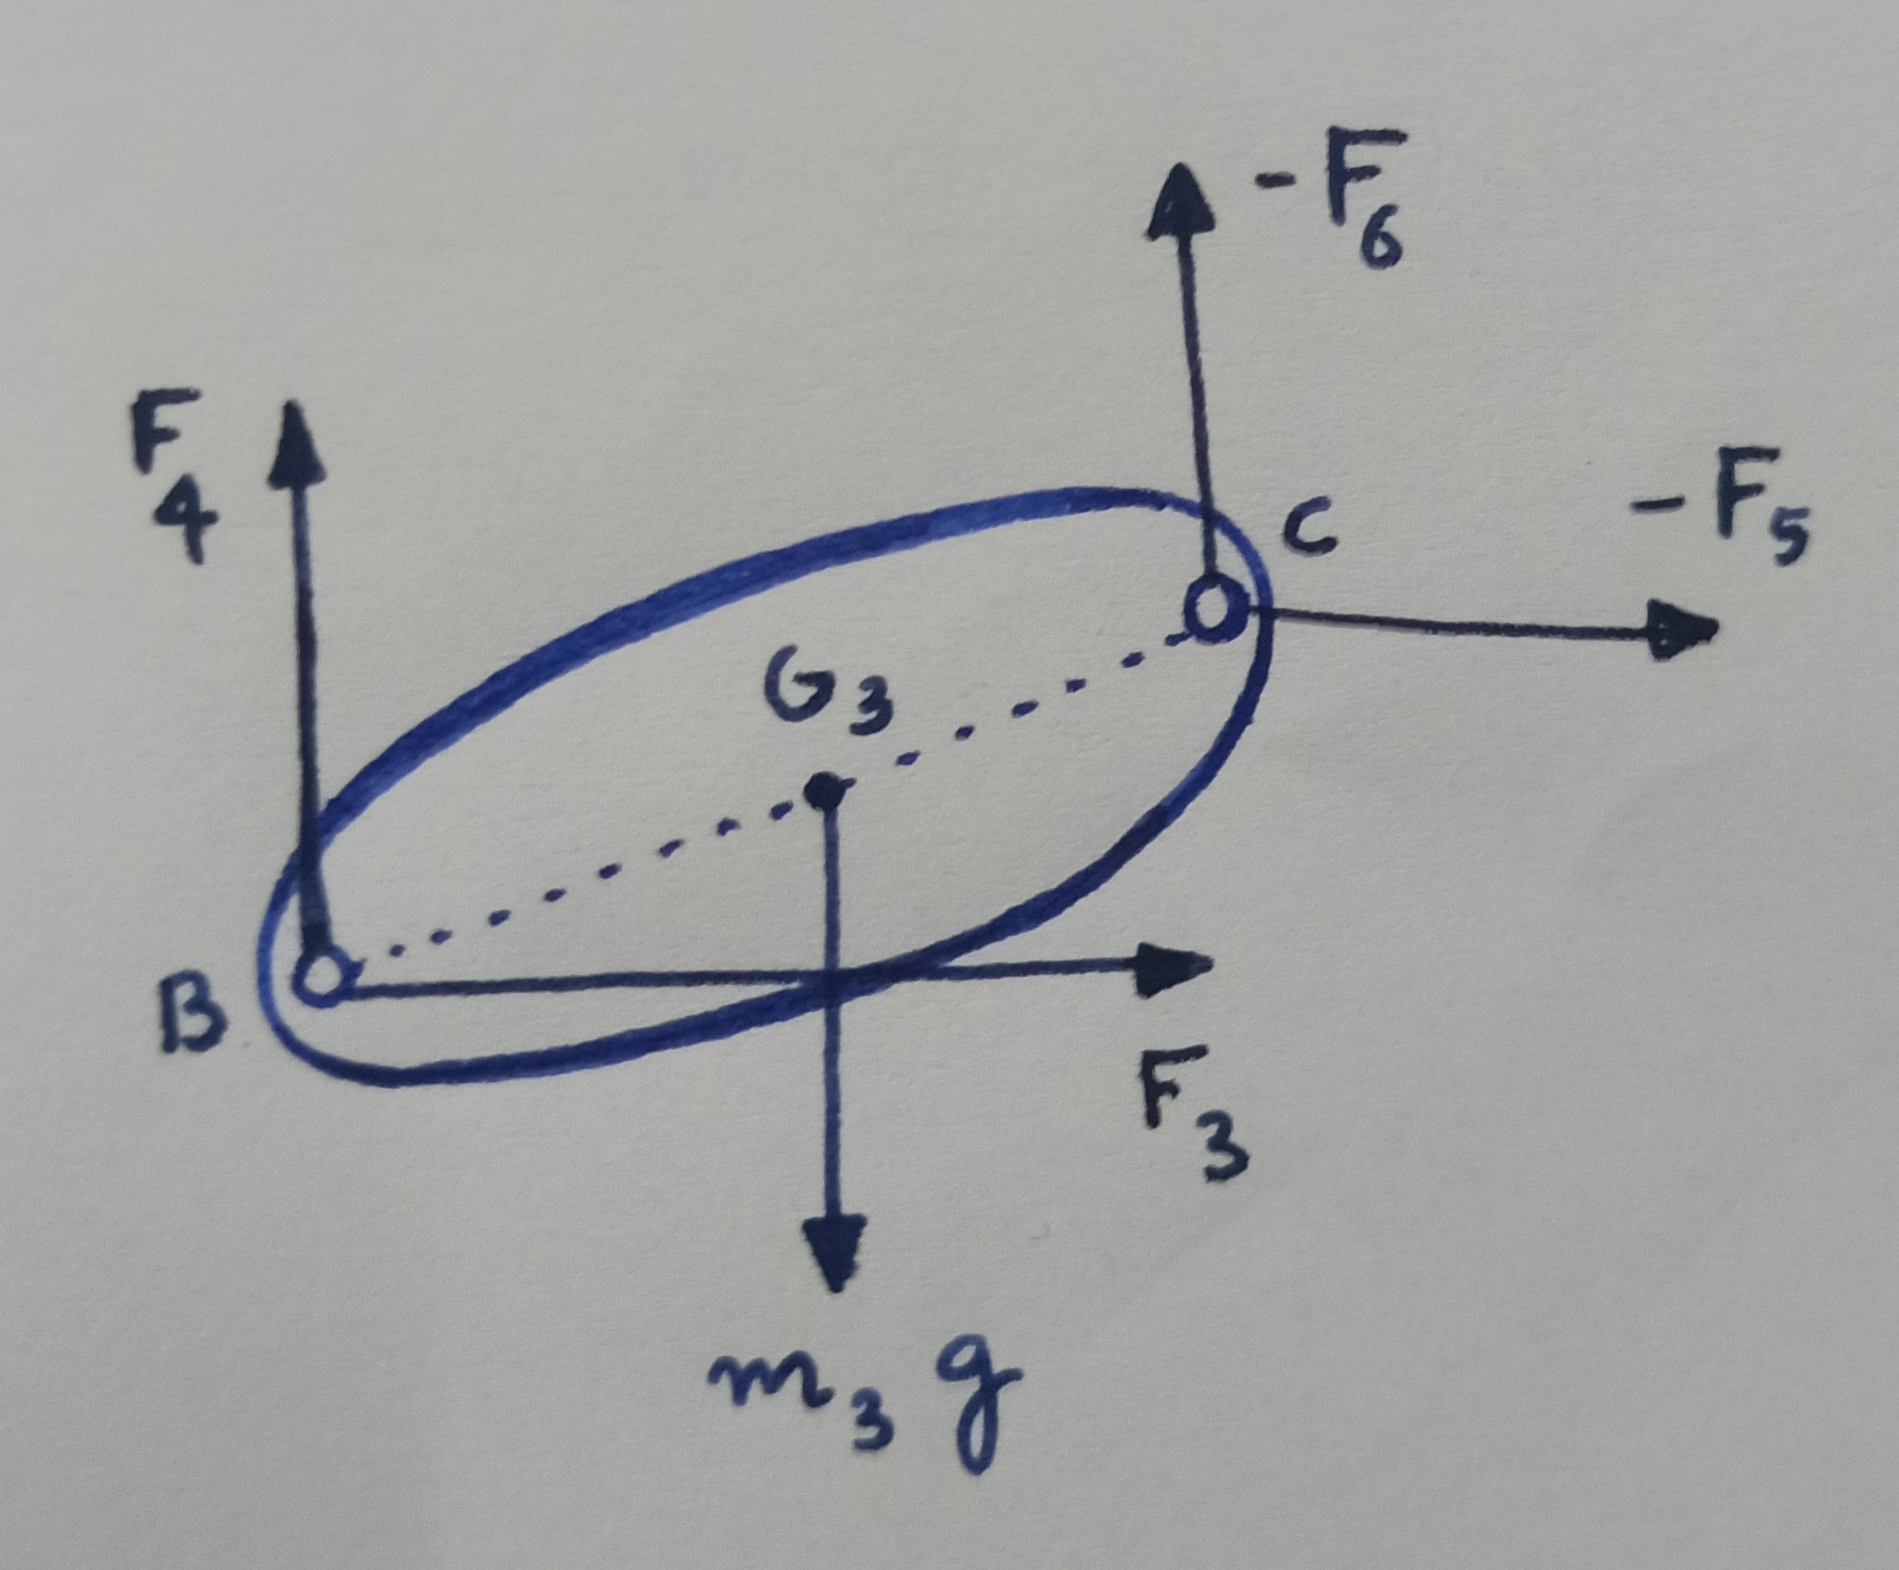 -F6
F4
-F5
C
G3
B
F3
m3 g